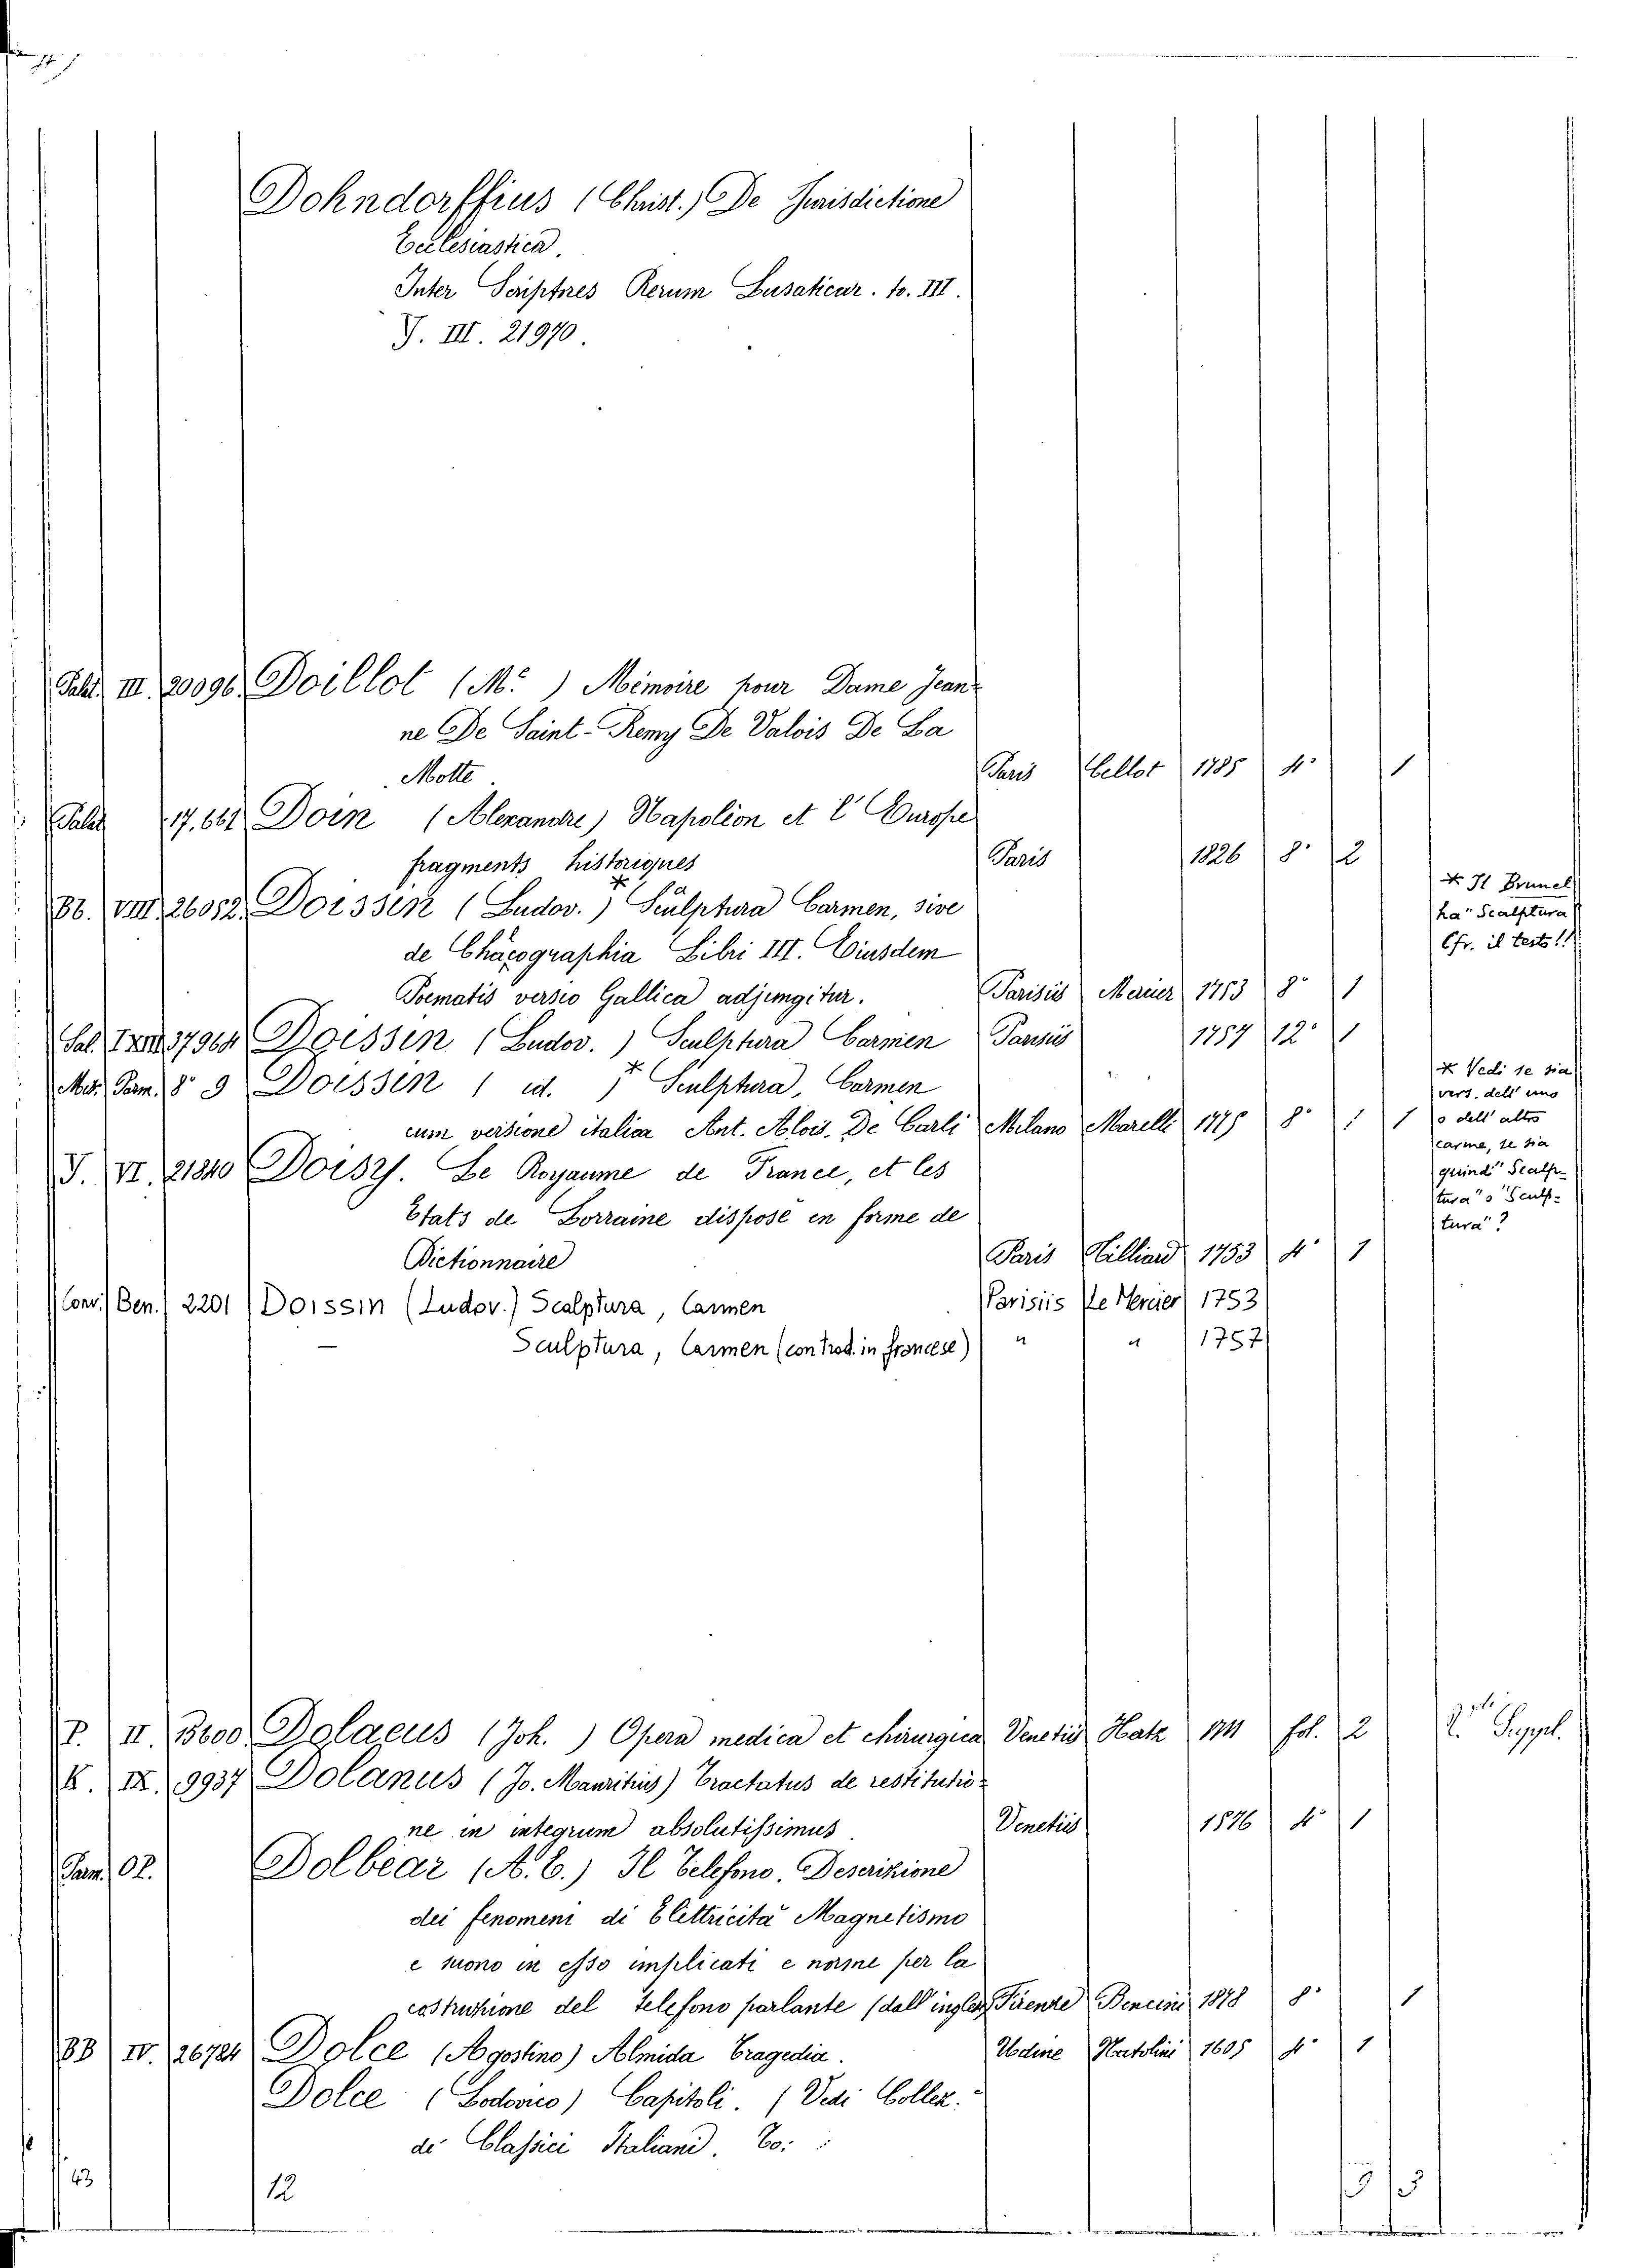 Dohndorffius (Christ.) De Jurisdictione
Ecclesiastica.
Inter Scriptores Rerum Lusaticar. to. III.
J. III. 21970.
Palat. III. 20096. Doillot (M.r ) Mémoire pour Dame Jean-
ne De Saint-Remy De Valois De La
Motte. Paris Cellot 1785 4° 1
Palat 17.661 Doin (Alexandre) Napoléon et l'Europe
fragments historiques Paris 1826 8° 2
BB. VIII. 26052. Doissin (Ludov.) Sculptura Carmen, sive
* Il Brunel
ha "Scalptura
Cfr. il testo!!
de Chalcographia Libri III. Eiusdem
Poematis versio Gallica adjungitur. Parisiis Mercier 1753 8° 1
Sal. 37964 Doissin (Ludov.) Sculptura Carmen Parisiis 1757 12° 1
Mss. Pam. 8° 9 Doissin ( id. )* Sculptura, Carmen
cum versione italica Ant. Alois. De Carli Milano Marelli 1775 8° 1 1
* Vedi se sia
vers. dell'uno
o dell'altro
carme, se sia
quindi "Scalp-
tura" o "Sculp-
tura"?
J. VI. 21840 Doisy. Le Royaume de France, et les
Etats de Lorraine disposé en forme de
Dictionnaire Paris Tilliard 1753 4° 1
Conv. Ben. 2201 Doissin (Ludov.) Scalptura, Carmen Parisiis Le Mercier 1753
– Sculptura, Carmen (con trad. in francese) " " 1757
P. II 13600. Dolaeus (Joh. ) Opera medica et chirurgica Venetiis Hatz fol. 2 Suppl.
K. IX. 9937 Dolanus (Jo. Mauritius) Tractatus de restitutio-
ne in integrum absolutissimus. Venetiis 1576 4° 1
Pam. 02. Dolbear (A. E.) Il Telefono. Descrizione
dei fenomeni di Elettricità Magnetismo
e suono in esso implicati e norme per la
costruzione del telefono parlante (dall'ingles. Firenze Bencini 1878 8° 1
BB IV. 26724 Dolce (Agostino) Almida Tragedia. Udine Natolini 1605 4° 1
Dolce (Lodovico) Capitoli. (Vedi Collez.
de' Classici Italiani. To:
43 12 5 5